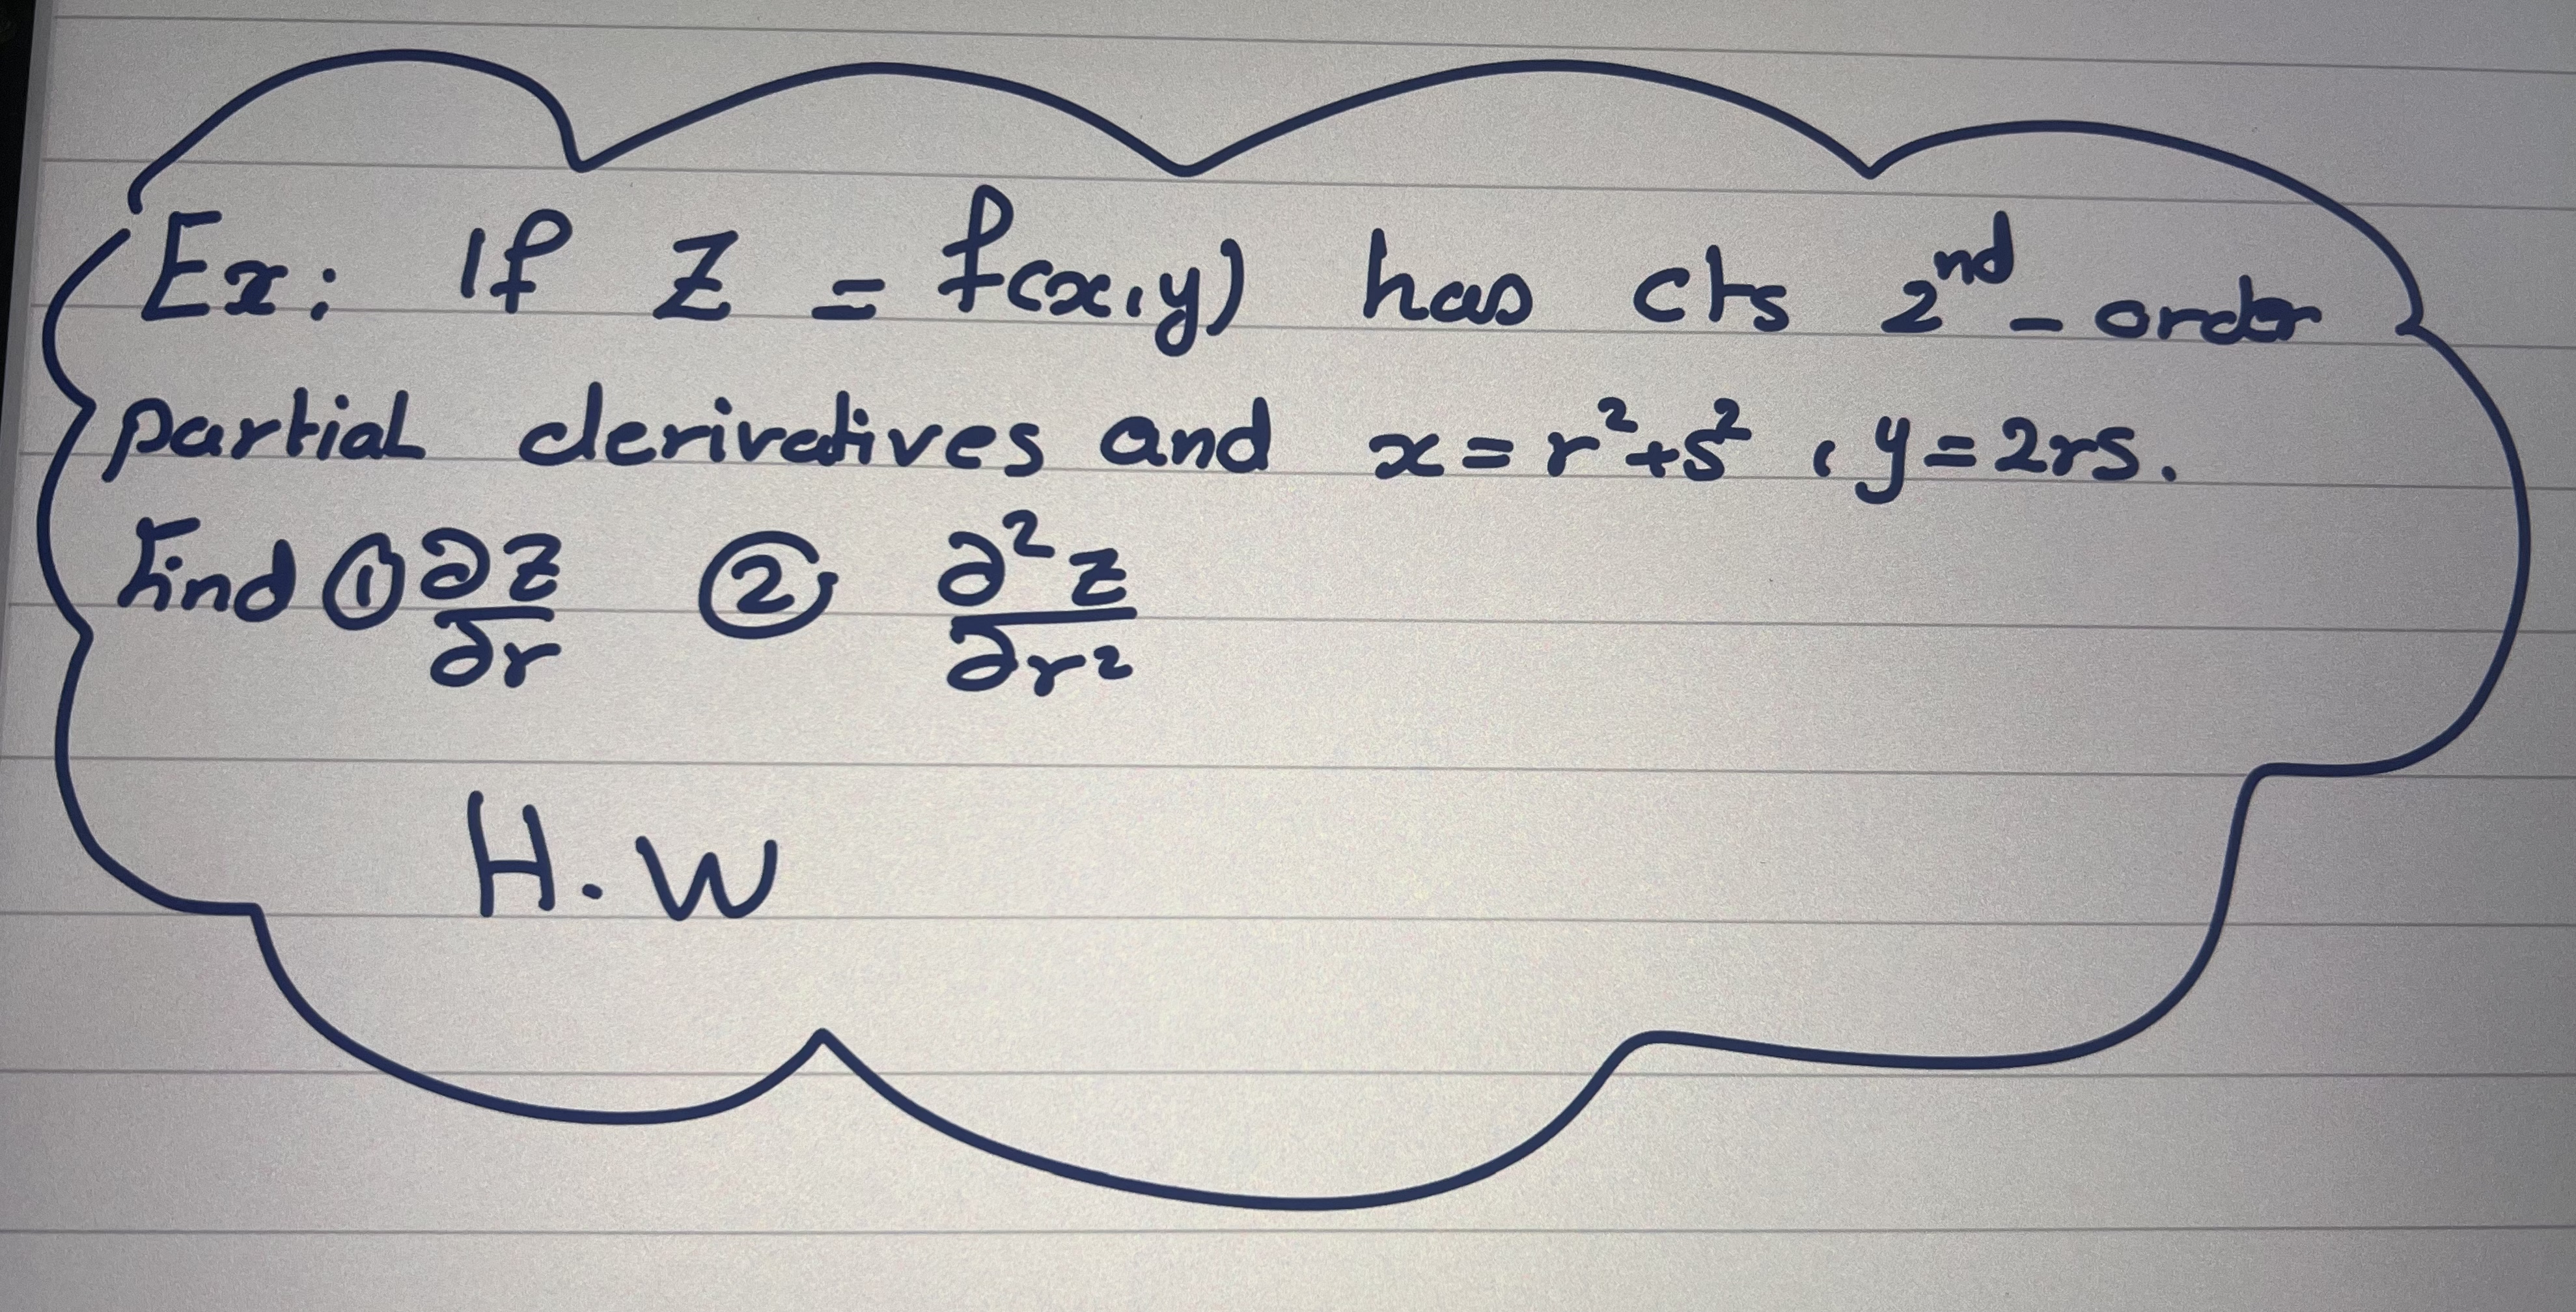 Ex: If Z = f(x,y) has cts 2nd-order
partial derivatives and x = r²+s² , y = 2rs.
Find ① ∂z/∂r ② ∂²z/∂r²
H.W